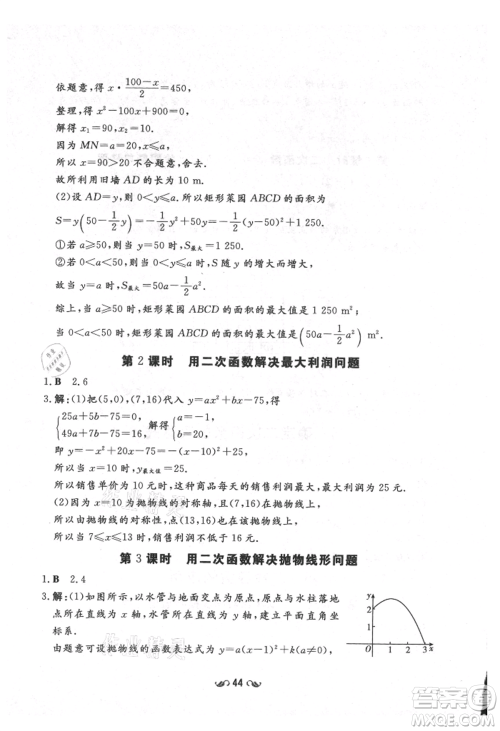 依题意，得 x·(100－x)/2＝450，
整理，得 x²－100x＋900＝0，
解得 x₁＝10，x₂＝90.
因为 MN＝a＝20，
所以 x＝90＞20 不合题意，舍去.
故所利用旧墙 AD 的长为 10 m.
(2)设 AD＝y，则可得所以矩形菜园 ABCD 的面积为
S＝y(50－1/2 y)＝－1/2 y²＋50y＝－1/2(y－50)²＋1 250.
①若 a≥50，则当 y＝50 时，S最大＝1 250.
②若 0＜a＜50，则当 0＜y≤a 时，S 随 y 的增大而增大.
故当 y＝a 时，S最大＝50a－1/2 a².
综上，当 a≥50 时，矩形菜园 ABCD 的面积最大值为 1 250；
当 0＜a＜50 时，矩形菜园 ABCD 的面积最大值为 50a－1/2 a².
第 2 课时 用二次函数解决最大利润问题
1.B 2.6
3.解：(1)把(5,0)，(7,16)代入 y＝ax²＋bx－75，得
{25a＋5b－75＝0, 49a＋7b－75＝16, 解得 {a＝－1, b＝20.
即 y＝－x²＋20x－75＝－(x－10)²＋25.
所以当 x＝10 时，y最大值＝25.
所以，销售单价为 10 元时，每天的销售利润最大，最大利润是 25 元.
(2)因为 x＝10 为抛物线的对称轴，抛物线的开口向下，
所以由抛物线的对称性，点(7,16)关于对称轴的对称点是(13,16).
故由抛物线得，销售利润不低于 16 元时，7≤x≤13.
第 3 课时 用二次函数解决抛物线形问题
1.B 2.4
3.解：(1)如图所示，以水管与地面交点为原点，原点与水柱落地
点所在直线为 x 轴，水管所在直线为 y 轴，建立平面直角坐
标系.
由题意可设抛物线的函数表达式为 y＝a(x－1)²＋h(a≠0，
y
2
1
O 1 2 3 x
44